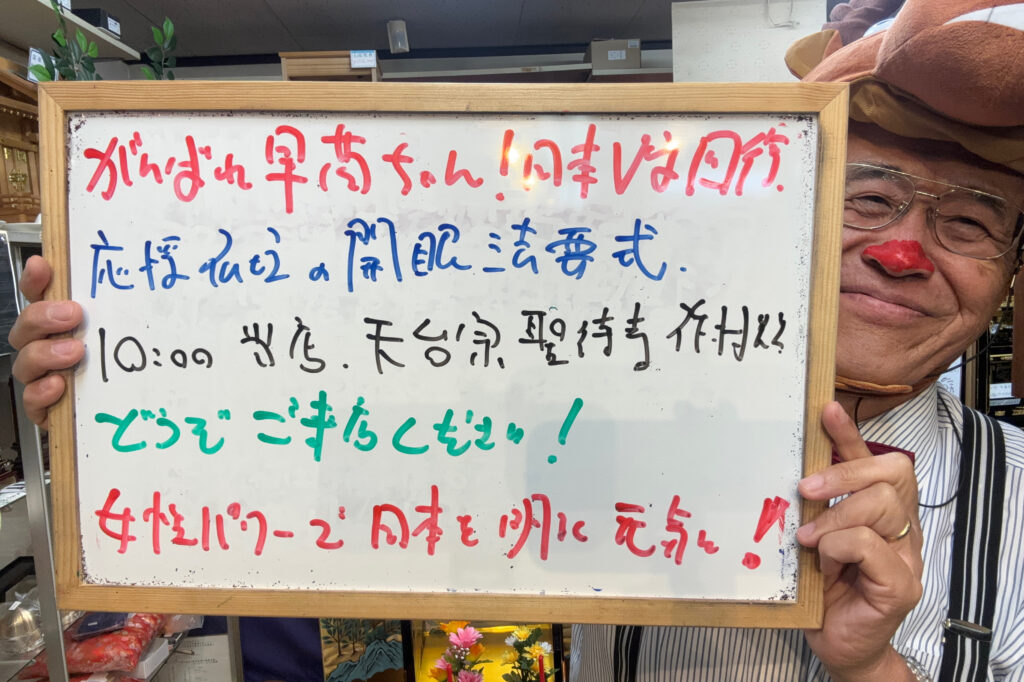 がんばれ早苗ちゃん!日本しな
応援仏壇の開眼法要式.
10:00 当店.天台宗 聖徳寺
どうぞご来店ください!
女性パワーで日本を明に元気に!!